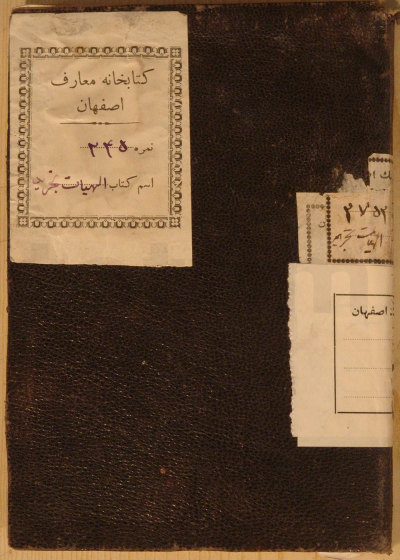 کتابخانه معارف
اصفهان
نمره ۲۴۵
اسم کتاب الهیات تجرید
۲۷۵۲
الهیات تجرید
اصفهان